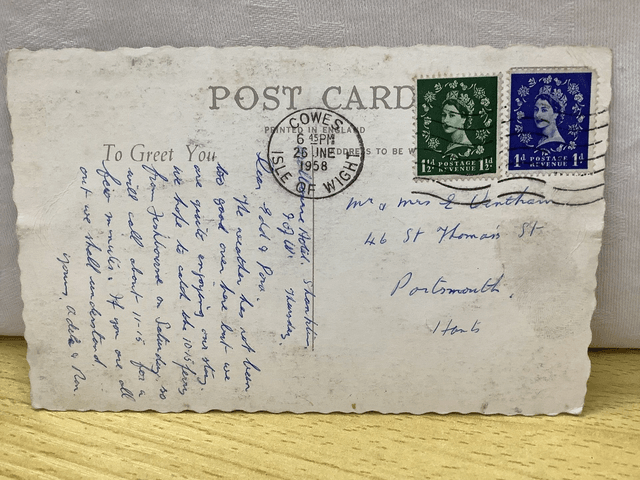 POST CARD
PRINTED IN ENGLAND
ADDRESS TO BE W
To Greet You
COWES
6 45PM
26 JNE
1958
ISLE OF WIGHT
1½d POSTAGE 1½d
REVENUE
1d POSTAGE 1d
REVENUE
Hotel.
I of W.
Thursday
Dear &
The weather has not been
too good over here but we
are quite enjoying our stay.
we hope to catch the 10.15 ferry
from Fishbourne on Saturday so
will call about 11-15 for a
few minutes. If you are all
out we shall understand.
yours,
Mr & Mrs E
46 St Thomas St
Portsmouth.
Hants